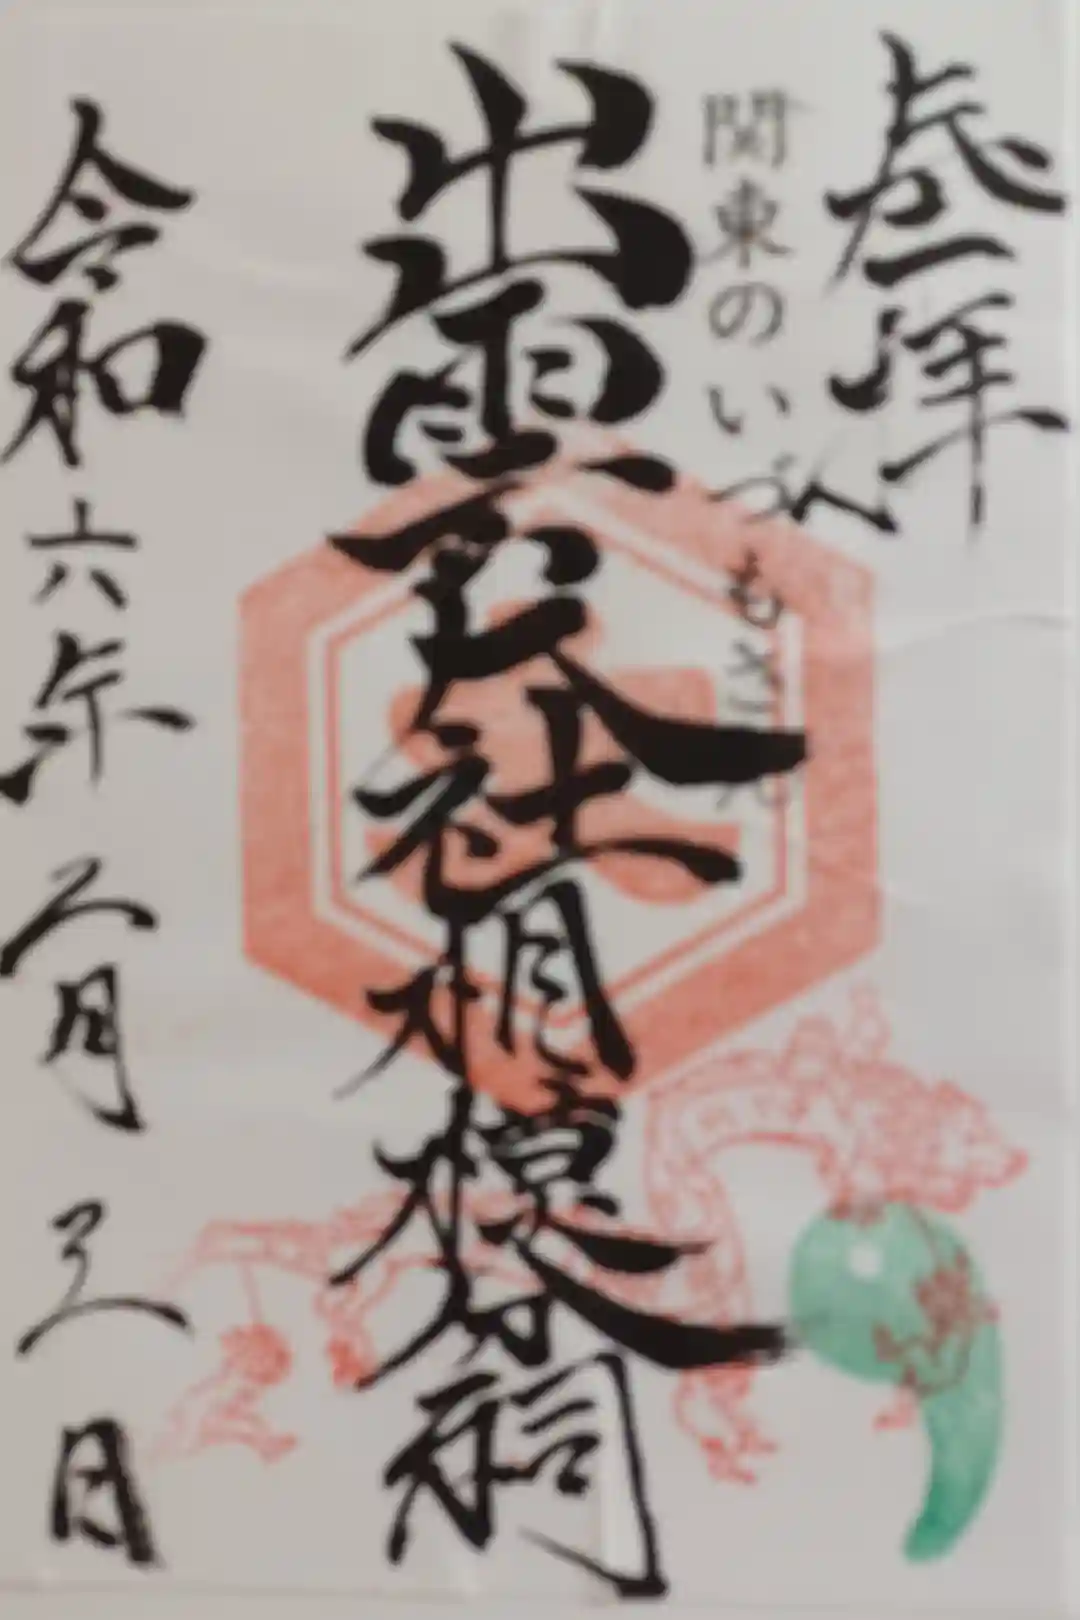 参拝
関東のいづもさん
出雲大社相模分祠
令和六年二月三日